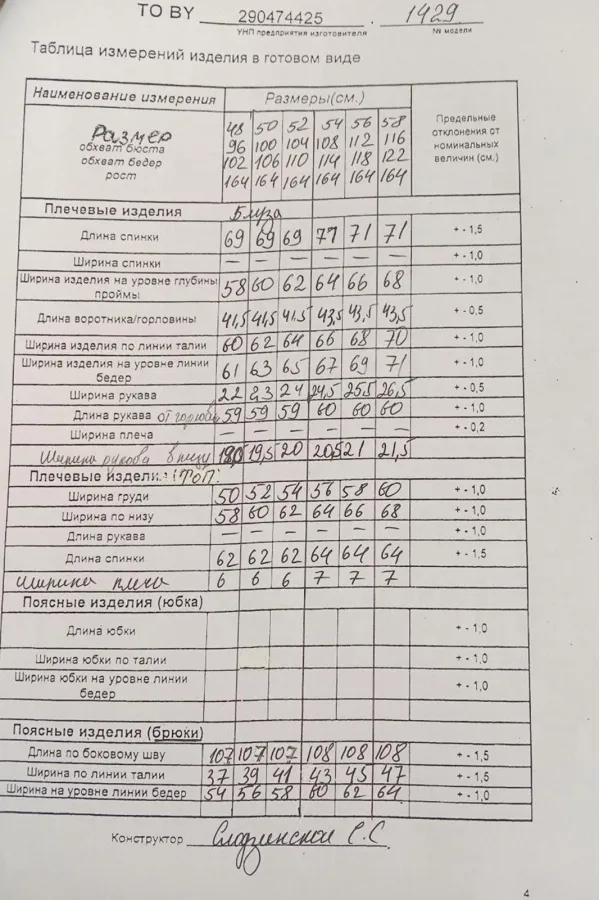 ТО BY 290474425 . 1429
УНП предприятия изготовителя № модели
Таблица измерений изделия в готовом виде
Наименование измерения Размеры(см.) Предельные отклонения от номинальных величин (см.)
Размер 48 50 52 54 56 58
обхват бюста 96 100 104 108 112 116
обхват бедер 102 106 110 114 118 122
рост 164 164 164 164 164 164
Плечевые изделия Блуза
Длина спинки 69 69 69 71 71 71 + - 1,5
Ширина спинки — — — — — — + - 1,0
Ширина изделия на уровне глубины проймы 58 60 62 64 66 68 + - 1,0
Длина воротника/горловины 41,5 41,5 41,5 43,5 43,5 43,5 + - 0,5
Ширина изделия по линии талии 60 62 64 66 68 70 + - 1,0
Ширина изделия на уровне линии бедер 61 63 65 67 69 71 + - 1,0
Ширина рукава 22 23 24 24,5 25,5 26,5 + - 0,5
Длина рукава от горлов 59 59 59 60 60 60 + - 1,0
Ширина плеча — — — — — — + - 0,2
Ширина рукова внизу 19,5 20 20,5 21 21,5
Плечевые изделия ТОП
Ширина груди 50 52 54 56 58 60 + - 1,0
Ширина по низу 58 60 62 64 66 68 + - 1,0
Длина рукава — — — — — — + - 1,0
Длина спинки 62 62 62 64 64 64 + - 1,5
Ширина плеча 6 6 6 7 7 7
Поясные изделия (юбка)
Длина юбки + - 1,0
Ширина юбки по талии + - 1,0
Ширина юбки на уровне линии бедер + - 1,0
Поясные изделия (брюки)
Длина по боковому шву 107 107 107 108 108 108 + - 1,5
Ширина по линии талии 37 39 41 43 45 47 + - 1,5
Ширина на уровне линии бедер 54 56 58 60 62 64 + - 1,0
Конструктор С.С.
4